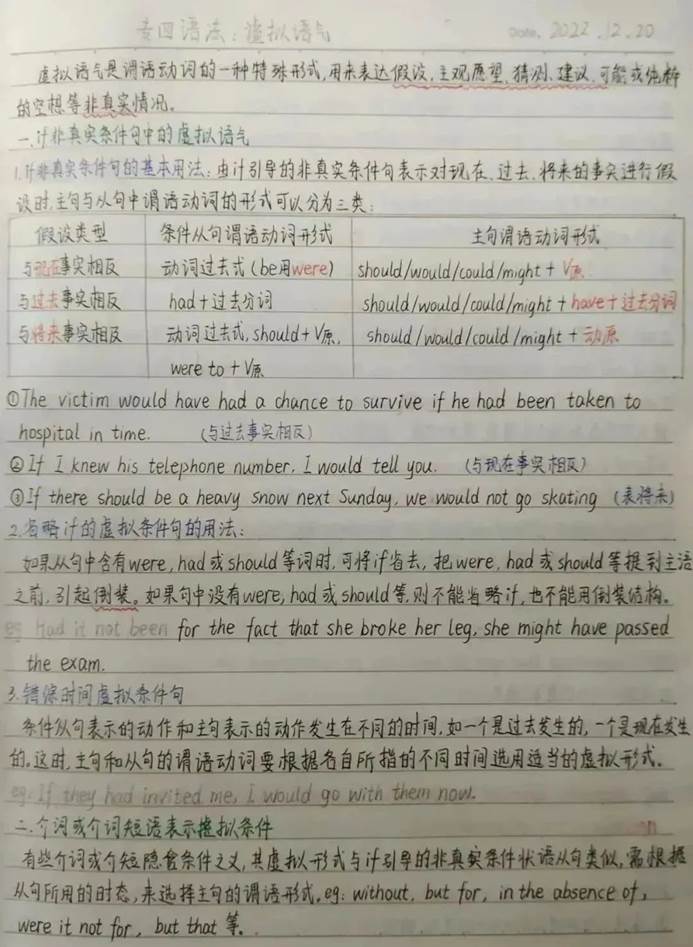 专四语法：虚拟语气 Date. 2022.12.20
虚拟语气是谓语动词的一种特殊形式,用来表达假设、主观愿望、猜测、建议、可能或纯粹
的空想等非真实情况。
一、if非真实条件句中的虚拟语气
1.if非真实条件句的基本用法：由if引导的非真实条件句表示对现在、过去、将来的事实进行假
设时,主句与从句中谓语动词的形式可以分为三类：
假设类型 条件从句谓语动词形式 主句谓语动词形式
与现在事实相反 动词过去式(be用were) should/would/could/might + V原
与过去事实相反 had+过去分词 should/would/could/might + have+过去分词
与将来事实相反 动词过去式, should+V原, should/would/could/might + 动原
were to + V原
①The victim would have had a chance to survive if he had been taken to
hospital in time. (与过去事实相反)
②If I knew his telephone number, I would tell you. (与现在事实相反)
③If there should be a heavy snow next Sunday, we would not go skating (表将来)
2.省略if的虚拟条件句的用法：
如果从句中含有were, had或should等词时,可将if省去,把were, had或should等提到主语
之前,引起倒装。如果句中没有were, had或should等,则不能省略if,也不能用倒装结构。
eg: Had it not been for the fact that she broke her leg, she might have passed
the exam.
3.错综时间虚拟条件句
条件从句表示的动作和主句表示的动作发生在不同的时间,如一个是过去发生的,一个是现在发生
的,这时,主句和从句的谓语动词要根据各自所指的不同时间选用适当的虚拟形式。
eg: If they had invited me, I would go with them now.
二、介词或介词短语表示虚拟条件
有些介词或介短隐含条件之义,其虚拟形式与if引导的非真实条件状语从句类似,需根据
从句所用的时态,来选择主句的谓语形式, eg: without, but for, in the absence of,
were it not for, but that 等。